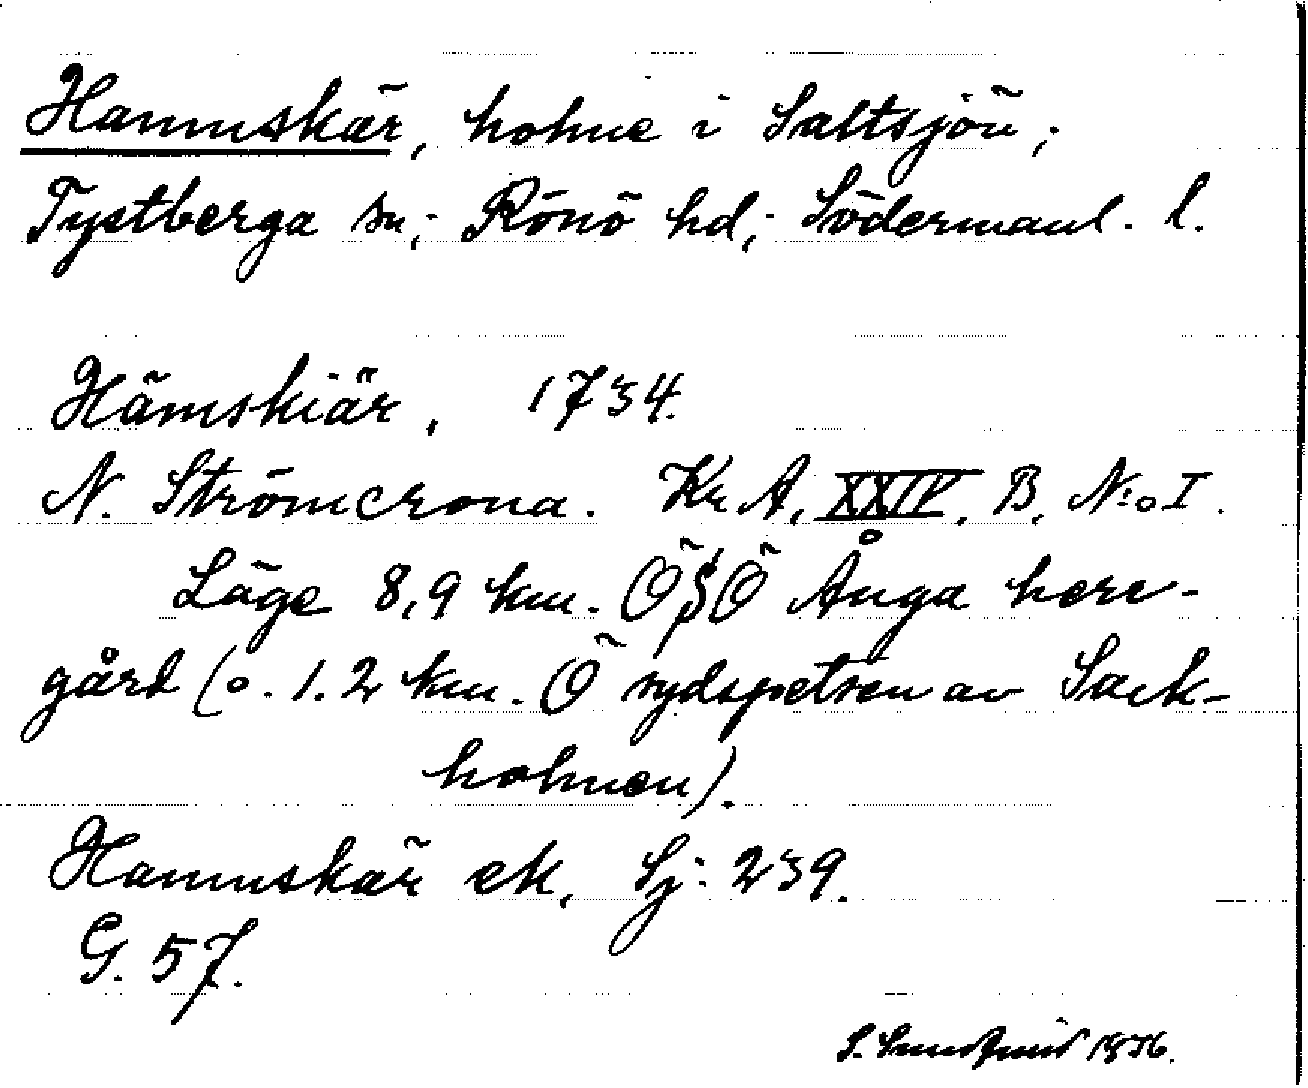 Hamnskär, holme i Saltsjön;
Tystberga sn; Rönö hd; Södermanl. l.
Hämskiär, 1734.
N. Strömcrona. Kr. A, XXIV, B, N:o I.
Läge 8,9 km. ÖSÖ Ånga herr-
gård (o. 1.2 km. Ö sydspetsen av Sack-
holmen).
Hamnskär ek, Sj: 239.
G. 57.